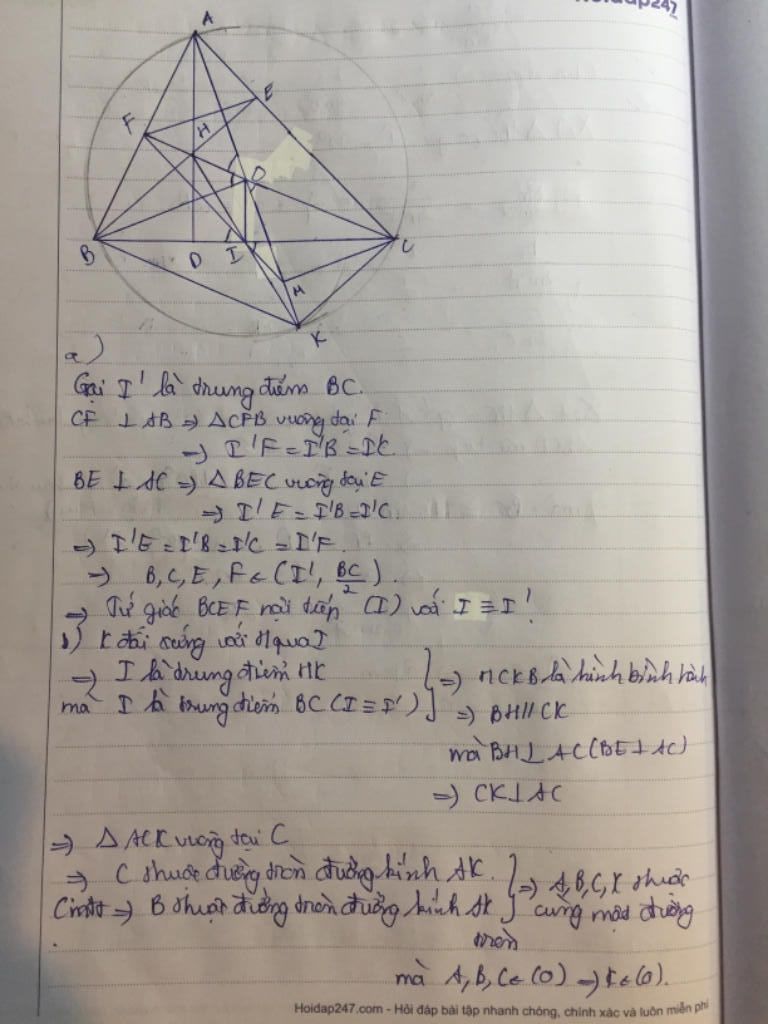 Hoidap247
A
E
F
H
O
B
D
I
C
M
K
a)
Gọi I' là trung điểm BC.
CF ⊥ AB => ΔCFB vuông tại F
=> I'F = I'B = I'C
BE ⊥ AC => ΔBEC vuông tại E
=> I'E = I'B = I'C.
=> I'E = I'B = I'C = I'F.
=> B, C, E, F ∈ (I', BC/2).
=> Tứ giác BCEF nội tiếp (I) với I ≡ I'.
b) K đối xứng với H qua I
=> I là trung điểm HK
mà I là trung điểm BC (I ≡ I')
=> HCKB là hình bình hành
=> BH // CK
mà BH ⊥ AC (BE ⊥ AC)
=> CK ⊥ AC
=> Δ ACK vuông tại C
=> C thuộc đường tròn đường kính AK.
Cmtt => B thuộc đường tròn đường kính AK
=> A, B, C, K thuộc
cùng một đường
tròn
mà A, B, C ∈ (O) => K ∈ (O).
Hoidap247.com - Hỏi đáp bài tập nhanh chóng, chính xác và luôn miễn phí